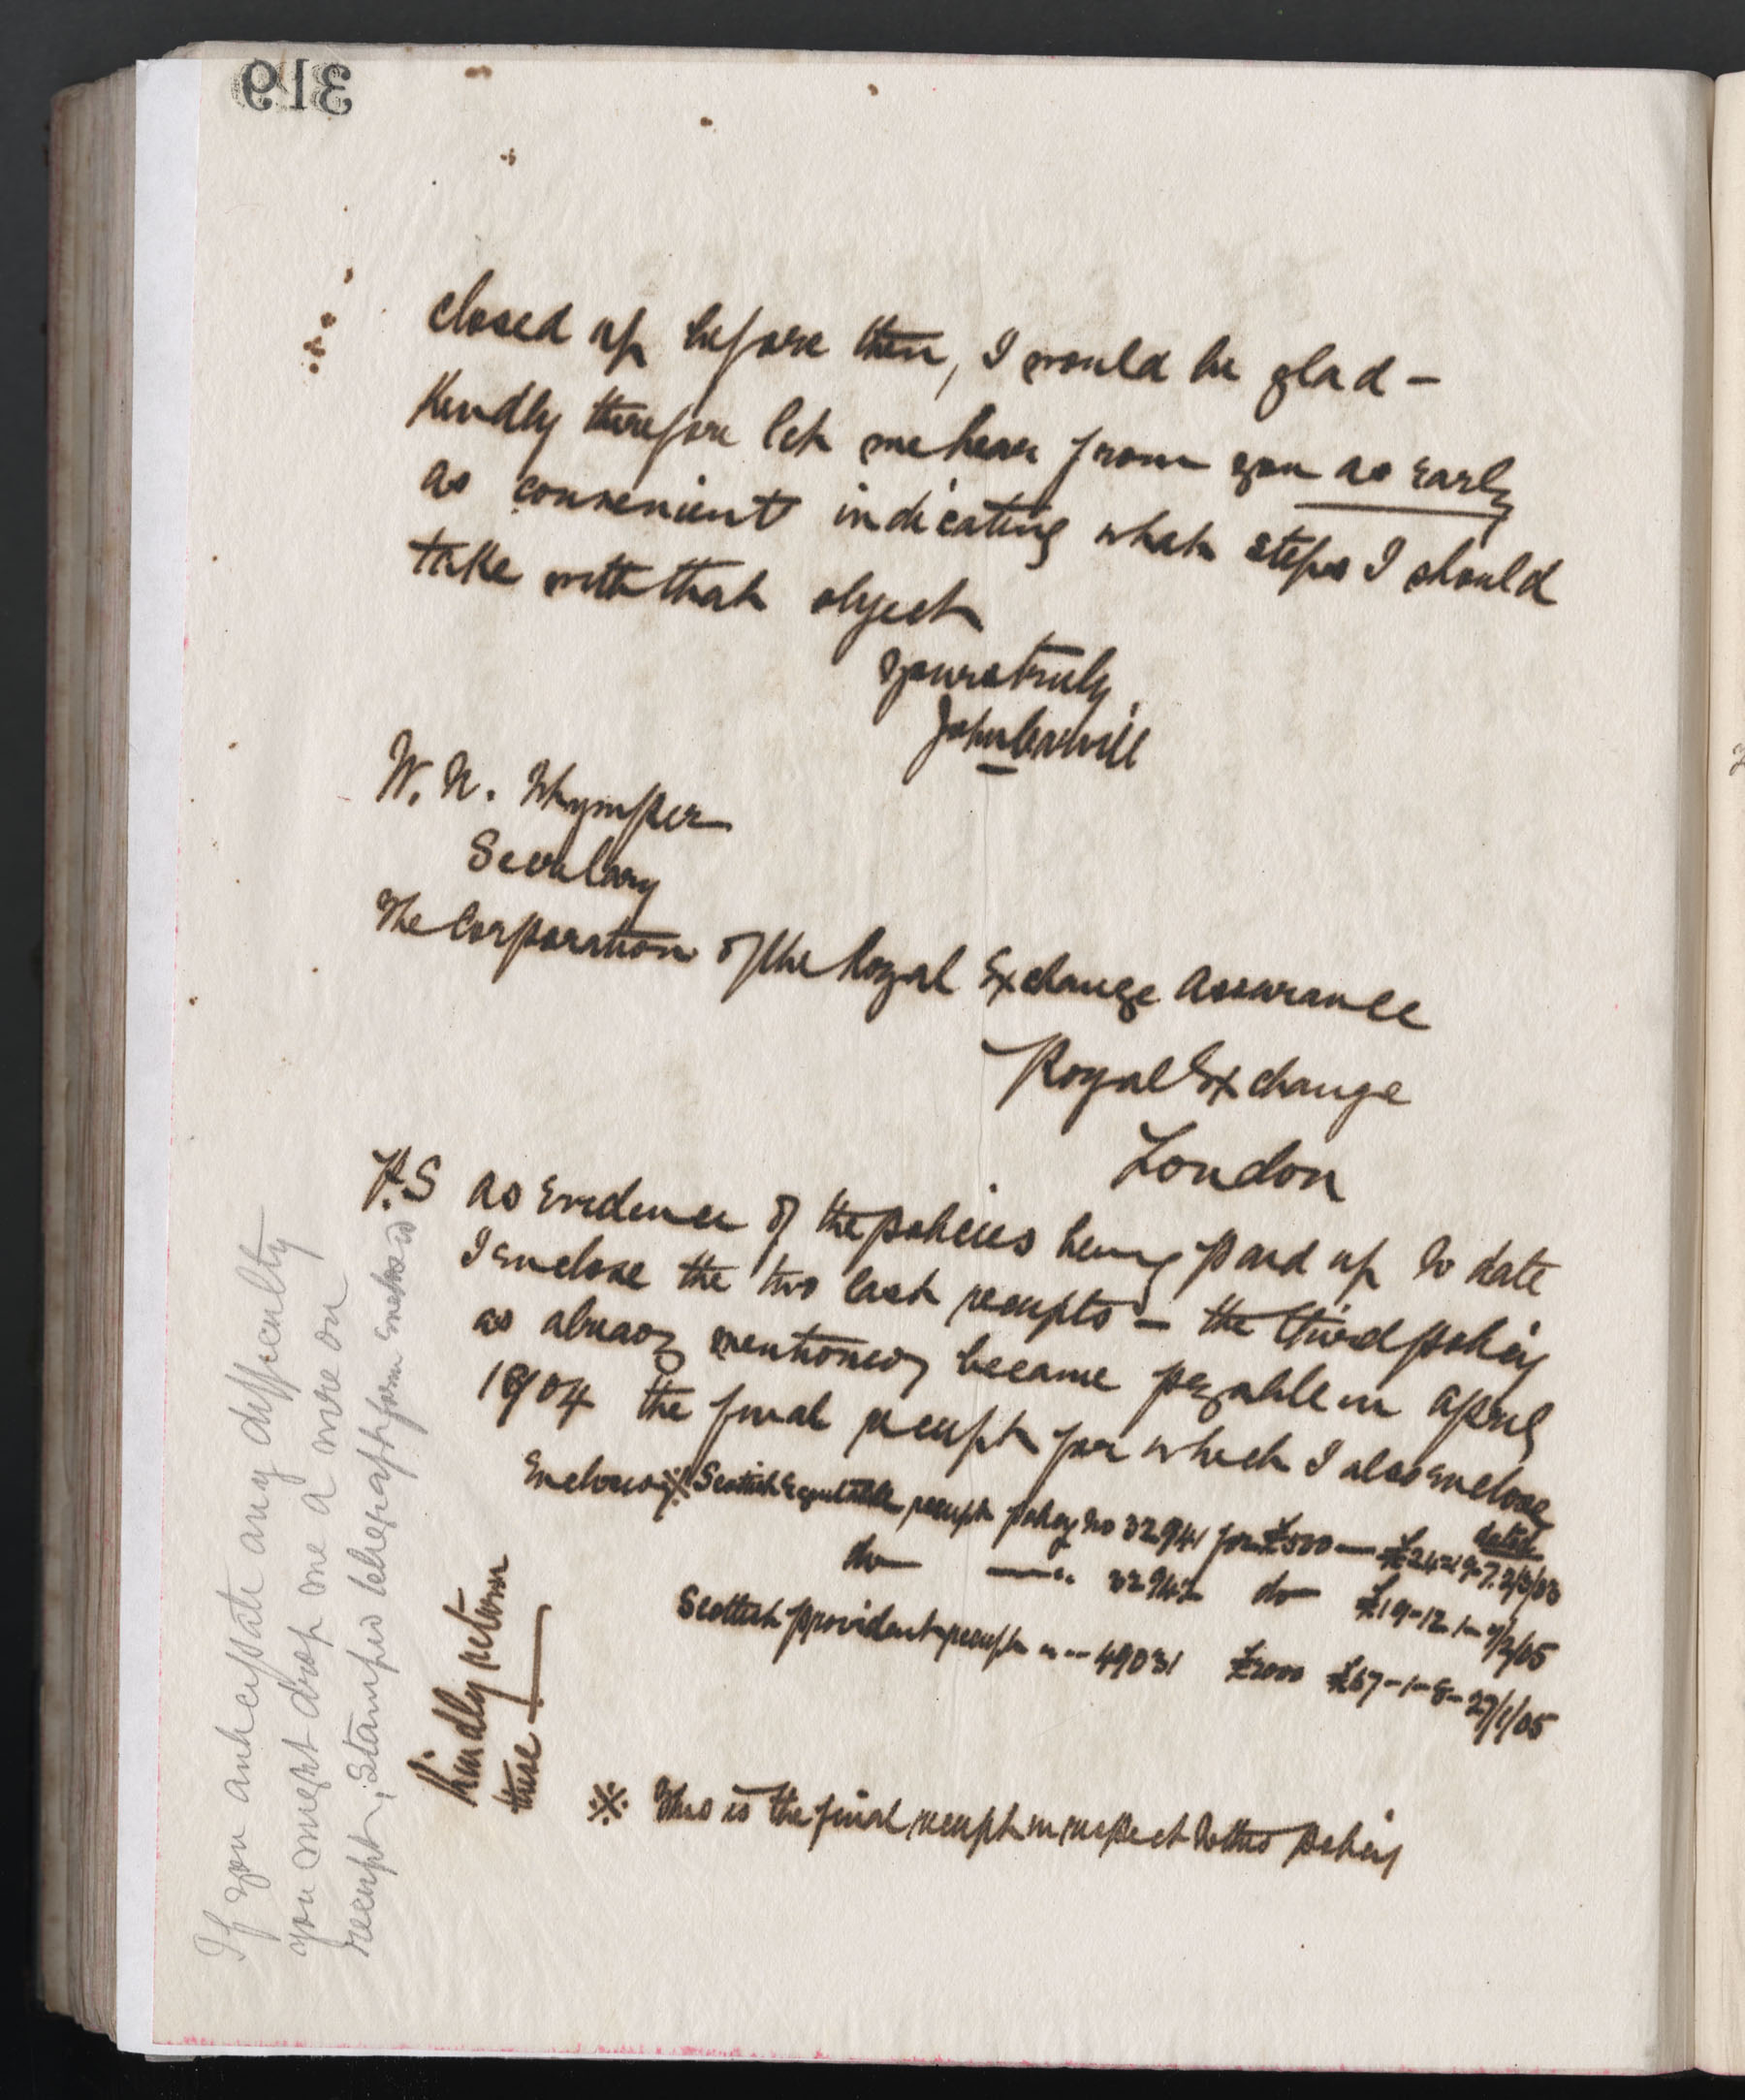 319
closed up before then, I would be glad –
Kindly therefore let me hear from you as early
as convenient indicating what steps I should
take with that object
Yours truly
John
W. N. Whymper
Secretary
The Corporation of the Royal Exchange Assurance
Royal Exchange
London
P.S as evidence of the policies being paid up to date
I enclose the two last receipts – the third policy
as already mentioned, became payable in April
1904 the final receipt for which I also enclose
dated
Enclosed ※ Scottish Equitable receipt policy no 32941 for £500 — £24-19-7.
do — " 32942 do £19-12-1-
Scottish Provident receipt " -- 49031 £2000 £67-1-8- 27/1/05
Kindly return
these
※ This is the final receipt in respect to this policy
If you anticipate any difficulty
you might drop me a wire on
receipt, stamped telegraph form enclosed